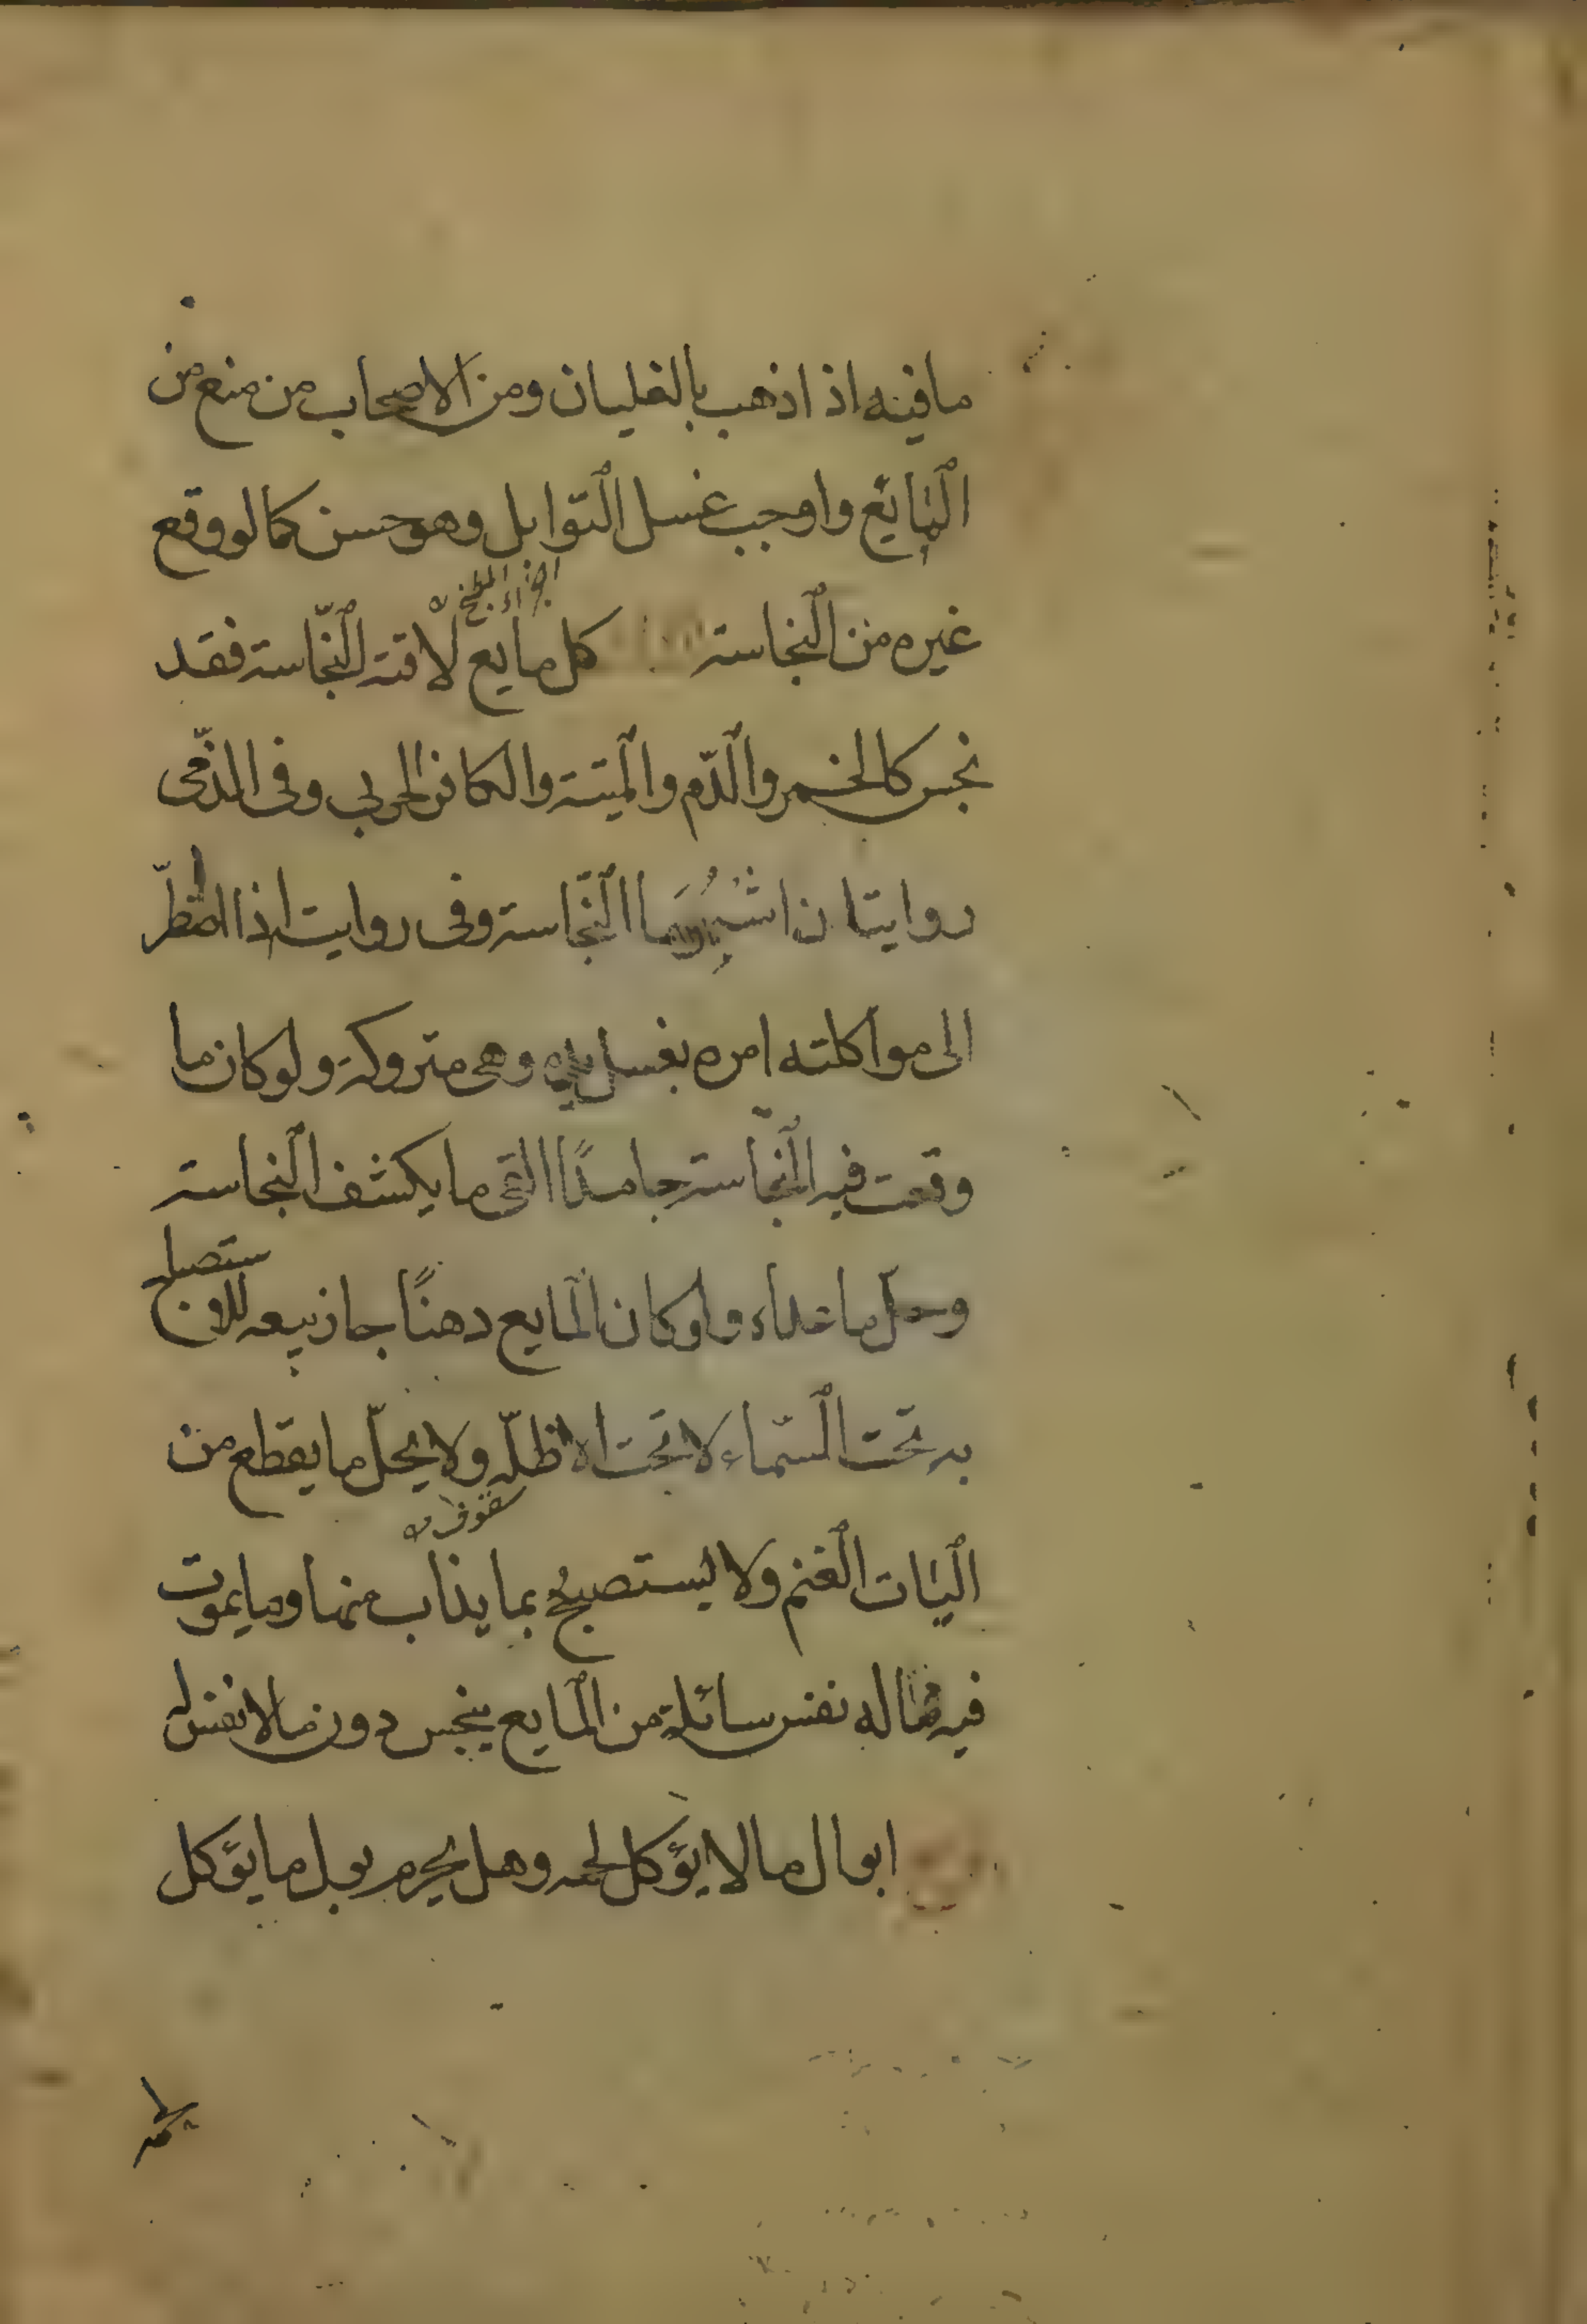 ما فيه اذا ذهب بالغليان ومن الاصحاب من منع من
المايع واوجب غسل التوابل وهو حسن كما لو وقع
غيره من النجاسة كل مايع لاقته النّجاسة فقد
نجس كالخمر والدّم والميتة والكافر الحربى وفى الذمّى
روايتان اشهرهما النّجاسة وفى رواية اذا اضطرّ
الى مواكلته امره بغسل يده وهى متروكة ولو كان ما
وقعت فيه النّجاسة جامدًا القى ما يكشف النجاسة
وحلّ ما عداه ولو كان المايع دهنًا جاز بيعه للاستصباح
به تحت السّماء لا تحت الاظلّه ولا يحلّ ما يقطع من
سقوف
اليات الغنم ولا يستصبح بما يذاب منها وما يموت
فيه ماله نفس سائلة من المايع ينجس دون مالا نفس له
ابوال مالا يؤكل لحمه وهل يحرم بول ما يؤكل
لحمه